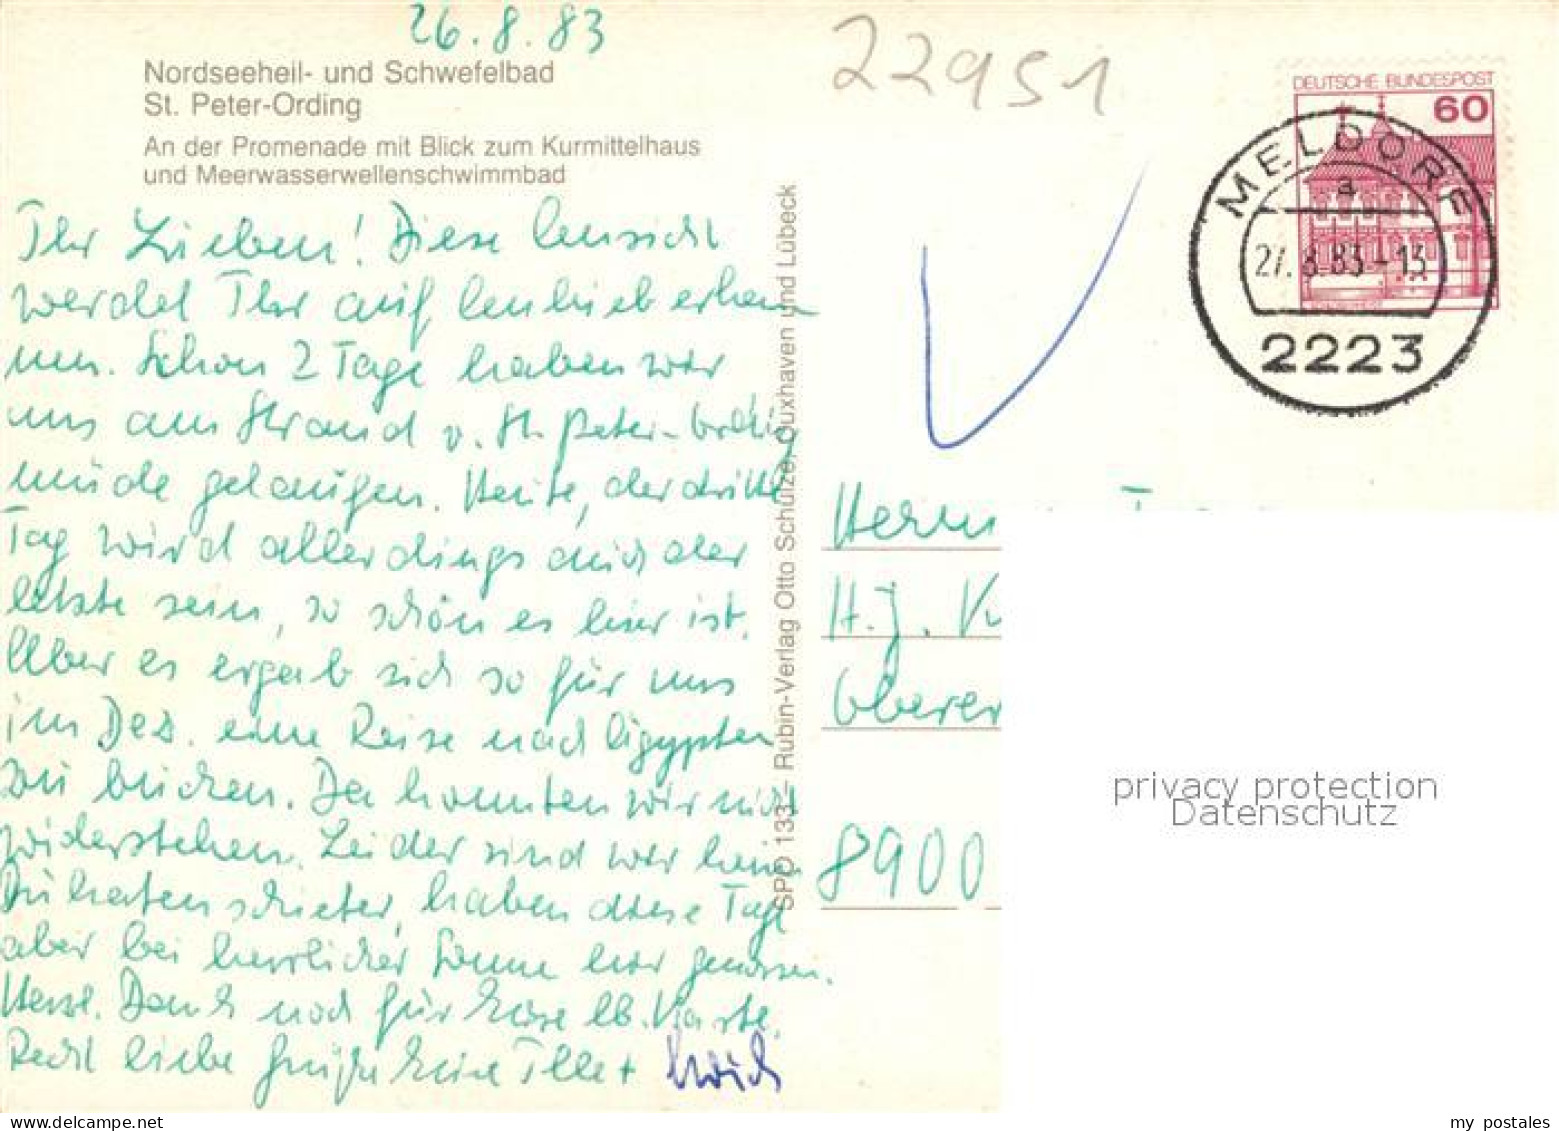 26.8.83
22951
Nordseeheil- und Schwefelbad
St. Peter-Ording
An der Promenade mit Blick zum Kurmittelhaus
und Meerwasserwellenschwimmbad
DEUTSCHE BUNDESPOST
60
MELDORF
a
27.8.83-13
2223
Ihr Lieben! Diese Ansicht
werdet Ihr auf Anhieb erken
nen. Schon 2 Tage haben wir
uns am Strand v. St. Peter-Ording
müde gelaufen. Heute, der dritte
Tag wird allerdings auch der
letzte sein, so schön es hier ist.
Aber es ergab sich so für uns
im Dez. eine Reise nach Ägypten
zu buchen. Da konnten wir nicht
widerstehen. Leider sind wir keine
haben diese Tage
aber bei herrlicher Sonne hier genossen.
Herzl. Dank noch für Eure lb. Karte.
Recht liebe Grüße Eure Ille +
SPO 133 - Rubin-Verlag Otto Schulze, Cuxhaven und Lübeck
Herrn
H.J.
Oberer
8900
privacy protection
Datenschutz
my postales